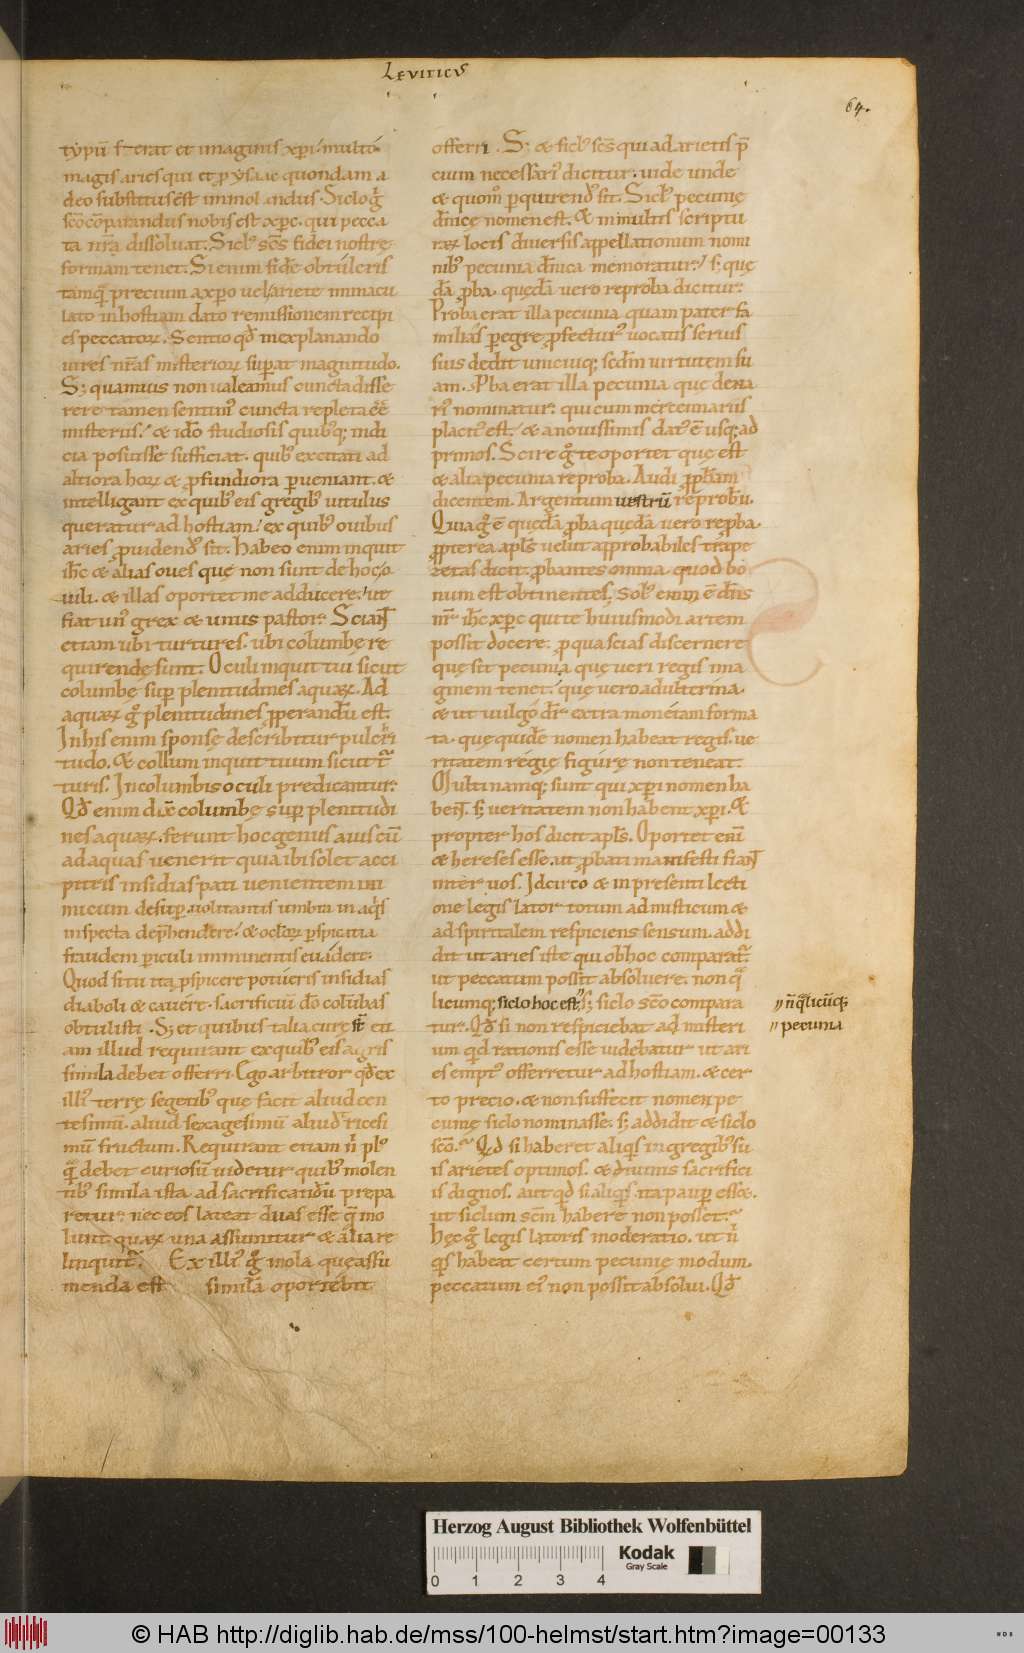 Leviticus
64.
typū ferat et imaginis xp̄i / multo
magis aries qui et p ysaac quondam a
deo substitus est immolandus. Siclo gͦ
scō cōparandus nobis est xp̄c. qui pecca
ta nr̄a dissoluat. Siclꝰ scs̄ fidei nostre
formam tenet. Si enim fidē obtuleris
tamq̄ precium a xp̄o uel ariete immacu
lato in hostiam dato remissionem recipi
es peccatoꝝ. Sentio qd̄ in explanando
uires nr̄as misterioꝝ suꝑat magnitudo.
S; quamuis non ualeamus cuncta disse
rere tamen sentimꝰ cuncta repleta ēē
misteriis. & idō studiosis quibꝰq; indi
cia posuisse sufficiat. quibꝰ excitati ad
altiora hoꝝ & ꝓfundiora ꝑueniant. &
intelligant ex quibꝰ eis gregibꝰ uitulus
queratur ad hostiam / ex quibꝰ ouibus
aries ꝓuidendꝰ sit. Habeo enim inquit
ih̄c & alias oues quę non sunt de hoc o
uili. & illas oportet me adducere. ut
fiat unꝰ grex & unus pastor. Sciant
etiam ubi turtures. ubi columbę re
quirendę sunt. Oculi inquit tui sicut
columbę suꝑ plenitudines aquaꝝ. Ad
aquaꝝ gͦ plenitudines ꝓperandū est.
In his enim sponsę describitur pulcri
tudo. & collum inquit tuum sicut tᵃ
turis. In columbis oculi predicantur.
Qd̄ enim dix̄ columbę suꝑ plenitudi
nes aquaꝝ. ferunt hoc genus auis cū
ad aquas uenerit quia ibi solet acci
pitris insidias pati uenientem ini
micum desuꝑ. uolitantis umbra in aqͥs
inspecta dep̄hendere. & oculoꝝ ꝑspicatia
fraudem ꝑiculi imminentis euadere.
Quod si tu ita ꝑspicere potueris insidias
diaboli & cauere. sacrificiū dō colūbas
obtulisti. S; et quibus talia curę st̄ eti
am illud requirant ex quibꝰ eis agris
simila debet offerri. Ego arbitror qd̄ ex
illiꝰ terrę segetibꝰ quę facit aliud cen
tesimū. aliud sexagesimū aliud tͥcesi
mū fructum. Requirant etiam si plꝰ
q̄ debet curiosū uidetur quibꝰ molen
tibꝰ simila ista ad sacrificandū prepa
retur. nec eos lateat duas esse q̄ mo
lunt. quaꝝ una assumitur & alia re
linquitᷣ. Ex illiꝰ gͦ mola quę assu
menda est simila oportebit
offerri. S; & siclꝰ scs̄ qui ad arietis p̄
cium necessariꝰ dicitur. uide unde
& quomͦ ꝑquirendꝰ sit. Siclꝰ pecunię
dn̄icę nomen est. & in multis scriptu
raꝝ locis diuersis appellationum nomi
nibꝰ pecunia dn̄ica memoratur / s; quę
dā ꝓba. quędā uero reproba dicitur.
Proba erat illa pecunia quam pater fa
milias ꝑegre ꝓfecturꝰ uocatis seruis
suis dedit unicuiq; scd̄m uirtutem su
am. Ꝓba erat illa pecunia quę dena
riꝰ nominatur. qui cum mercennariis
placitꝰ est. & a nouissimis datꝰ ē usq; ad
primos. Scire gͦ te oportet quę est
& alia pecunia reproba. Audi ꝓph̄am
dicentem. Argentum vestrū reprobū.
Quia gͦ ē quędā ꝓba quędā uero reꝓba.
ꝓpterea apl̄s uelut approbabiles trape
zetas dicit. ꝓbantes omnia. quod bo
num est obtinentes. Solꝰ enim ē dn̄s
nr̄ ih̄c xp̄c qui te huiusmodi artem
possit docere. ꝑ qua scias discernere
quę sit pecunia quę ueri regis ima
ginem tenet. quę uero adulterina.
& ut uulgo dr̄ extra monetam forma
ta. quę quidē nomen habeat regis. ue
ritatem regię figurę non teneat.
Multi namq; sunt qui xp̄i nomen ha
bent. s; ueritatem non habent xp̄i. &
propter hos dicit apl̄s. Oportet eni
& hereses esse. ut ꝓbati manifesti fiant
inter uos. Idcirco & in presenti lecti
one legis lator totum ad misticum &
ad spiritalem respiciens sensum. addi
dit ut aries iste qui ob hoc comparatᷣ
ut peccatum possit absoluere. non qͣ
licumq; siclo hoc est ″ s; siclo scō compara
tur. Qd̄ si non respiciebat ad misteri
um. qd̄ rationis esse uidebatur ut ari
es emptꝰ offerretur ad hostiam. & cer
to precio. & non suffecit nomen pe
cunię siclo nominasse. s; addidit & siclo
scō. Qd̄ si haberet aliqͥs in gregibꝰ su
is arietes optimos. & diuinis sacrifici
is dignos. aut qd̄ si aliqͥs ita pauꝑ esset.
ut siclum scm̄ habere non posset.
Hęc gͦ legis latoris moderatio. ut nͥ
qͥs habeat certum pecunię modum.
peccatum eiꝰ non possit absolui. Qd̄
″ n̄ qͣlicūq;
″ pecunia
Herzog August Bibliothek Wolfenbüttel
Kodak
Gray Scale
0 1 2 3 4
© HAB http://diglib.hab.de/mss/100-helmst/start.htm?image=00133